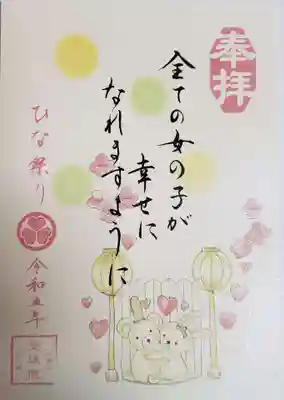 奉拝
全ての女の子が
幸せに
なれますように
ひな祭り
令和五年